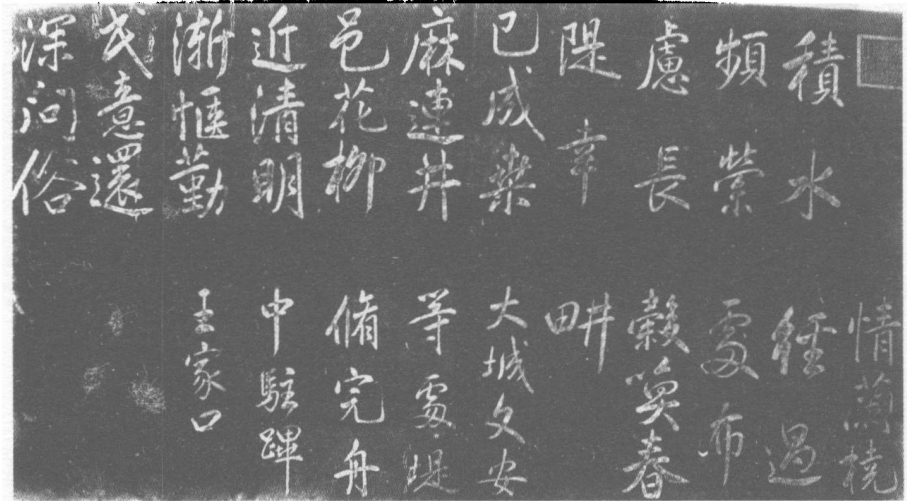 積水
頻縈
慮長
隄幸
已成桑
麻連井
邑花柳
近清明
漸愜勤
民意還
深問俗
情蘭橈
經過
處布
穀喚春
畊
大城文安
等處堤
脩完舟
中駐蹕
王家口